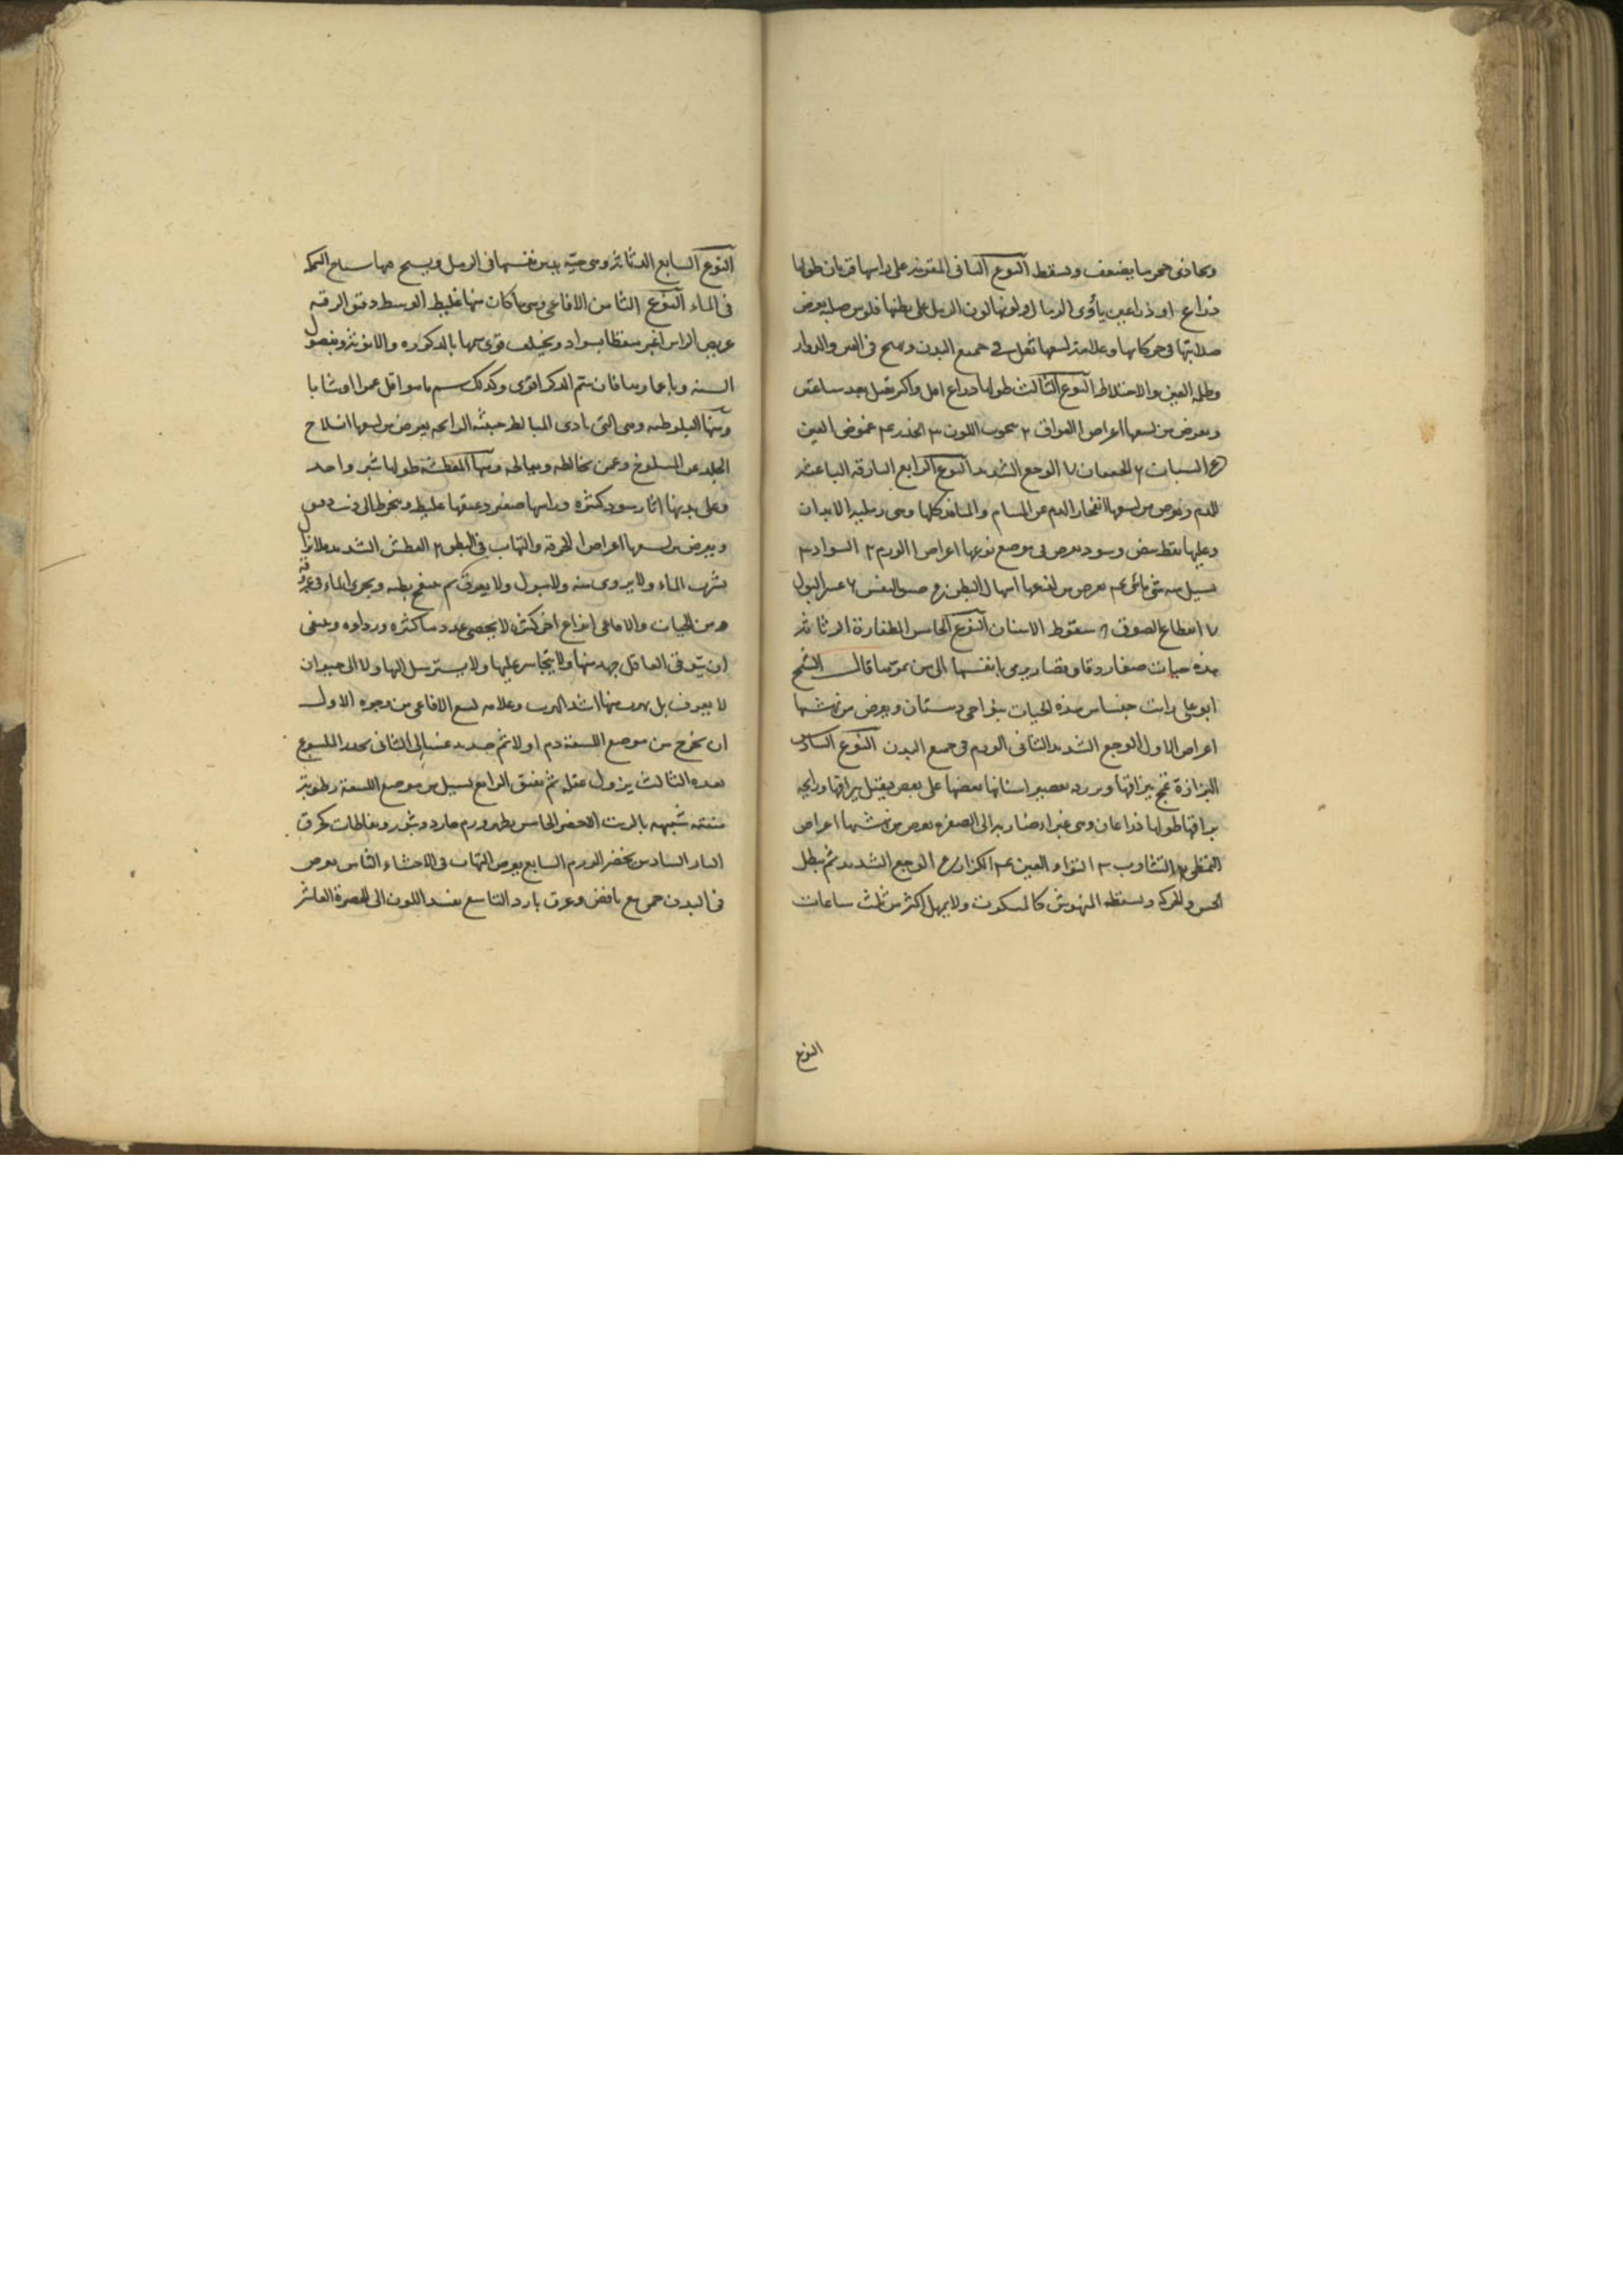 ويحاذي جحرها يضعف ويسقط النوع الثاني المقرنة على راسها قرنان طولها
ذراع او ذراعين يأوى الرمال ولونها لون الرمل على بطنها فلوس صلبة يعرض
صلابتها في حركاتها وعلامة لسعها ثقل في جميع البدن و في العين والدوار
وظلمة العين والاختلاط النوع الثالث طولها ذراع اقل واكثر يقتل بعد ساعتين
ويعرض من لسعها اعراض ا الفواق ٢ شحوب اللون ٣ الخدر ٤ غموض العين
٥ السبات ٦ الخفقان ٧ الوجع الشديد النوع الرابع الباعثة
للدم ويعرض من لسعها انفجار الدم عن المسام والمنافذ كلها وهى رملية الابدان
وعليها نقط بيض وسود يعرض في موضع اعراض ا الورم ٢ السواد ٣
يسيل منه شئ مائى ٤ يعرض من اسهال البطن ٥ ضيق النفس ٦ عسر البول
٧ انقطاع الصوت ٨ سقوط الاسنان النوع الخامس الطفارة
هذه حيات صغار دقاق قصار يرمى بانفسها الى من يمر بها قال الشيخ
ابو على رايت جنسا من هذه الحيات بنواحى دهستان ويعرض من نهشها
اعراض الاول الوجع الشديد الثانى الورم فى جميع البدن النوع السادس
البزاقة تمج ببزاقها اسنانها بعضها على بعض فيقتل ببزاقها ورايحة
بزاقها طولها ذراعان وهى غبراء ضاربة الى الصفرة يعرض من نهشها اعراض
التمطى ٢ التثاوب ٣ التواء العين ٤ الكزاز ٥ الوجع الشديد ثم يبطل
الحس والحركة ويسقط المنهوش كالمسكوت ولا يمهل اكثر من ثلث ساعات
النوع
النوع السابع الدثانة وهى حية يدس نفسها فى الرمل ويسبح فيها سباح السمكة
فى الماء النوع الثامن الافاعى وهى ما كان منها غليظ الوسط دقيق الرقبة
عريض الراس اغبر منقطا بسواد ويختلف قوى سمها بالذكورة والانوثة وبفصول
السنة فان سم الذكر اقوى وكذلك سم ما هو اقل عمرا او شابا
ومنها البلوطية وهى التى تاوى البلالط خبيثة الرايحة يعرض من لسعها انسلاخ
الجلد عن الملسوع وعمن يخالطه ويعالجه ومنها المعطشة طولها شبر واحد
وعلى بدنها اثار سود كثيرة وراسها صغير وعنقها غليظ وينخرط الى ذنب دقيق
ويعرض من لسعها اعراض ا الحرقة والتهاب فى البطن ٢ العطش الشديد فلا يزال
يشرب الماء ولا يروى منه ولا يبول ولا يعرق ثم ينتفخ بطنه ويجرى الماء فى عروقه
ومن الحيات والافاعى انواع اخر كثيرة لا يحصى عددها كثرة ورداوة وينبغى
ان يتوقى العاقل جهده منها ولا يتجاسر عليها ولا يسترسل اليها ولا الى حيوان
لا يعرف بل يهرب منها اشد الهرب وعلامة لسع الافاعى من وجوه الاول
ان يخرج من موضع اللسعة دم اولا ثم صديد الثانى يخدر الملسوع
بعده الثالث يزول عقله ثم يفيق الرابع يسيل من موضع اللسعة رطوبة
منتنة شبيهة بالزيت الاخضر الخامس يظهر ورم حار وبثور ونفاطات كحرق
النار السادس يخضر الورم السابع يعرض التهاب فى الاحشاء الثامن يعرض
فى البدن حمى مع نافض وعرق بارد التاسع يفسد اللون الى الصفرة العاشر